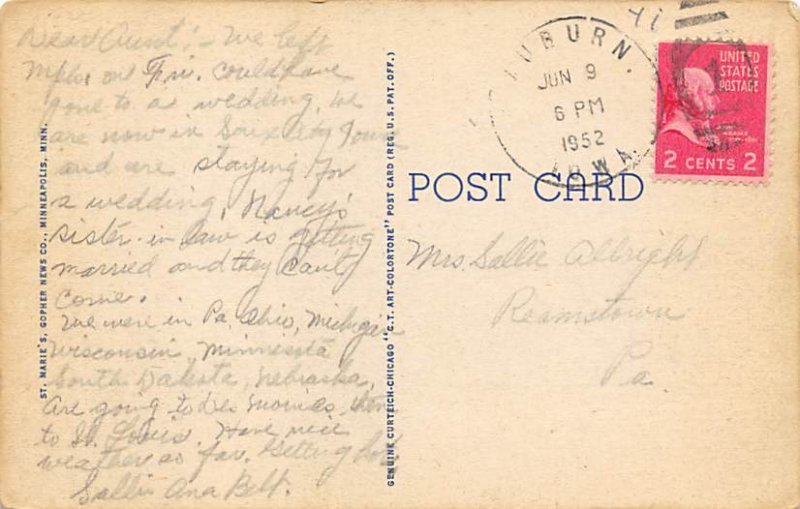 Dear Aunt:- We left
Mpls. on Fri. could have
gone to a wedding, we
are now in Sioux City Iowa
and are staying for
a wedding, Nancy's
sister-in-law is getting
married and they can't
come.
We were in Pa. Ohio, Michigan
Wisconsin, Minnesota
South Dakota, Nebraska,
are going to Des Moines, then
to St. Louis. Have nice
weather so far. Getting hot.
Sallie Ana Belt.
ST. MARIE'S, GOPHER NEWS CO., MINNEAPOLIS, MINN.
GENUINE CURTEICH-CHICAGO "C.T. ART-COLORTONE" POST CARD (REG. U.S. PAT. OFF.)
41
AUBURN.
JUN 9
6 PM
1952
IOWA
UNITED
STATES
POSTAGE
2 CENTS 2
POST CARD
Mrs Sallie Albright
Reamstown
Pa.